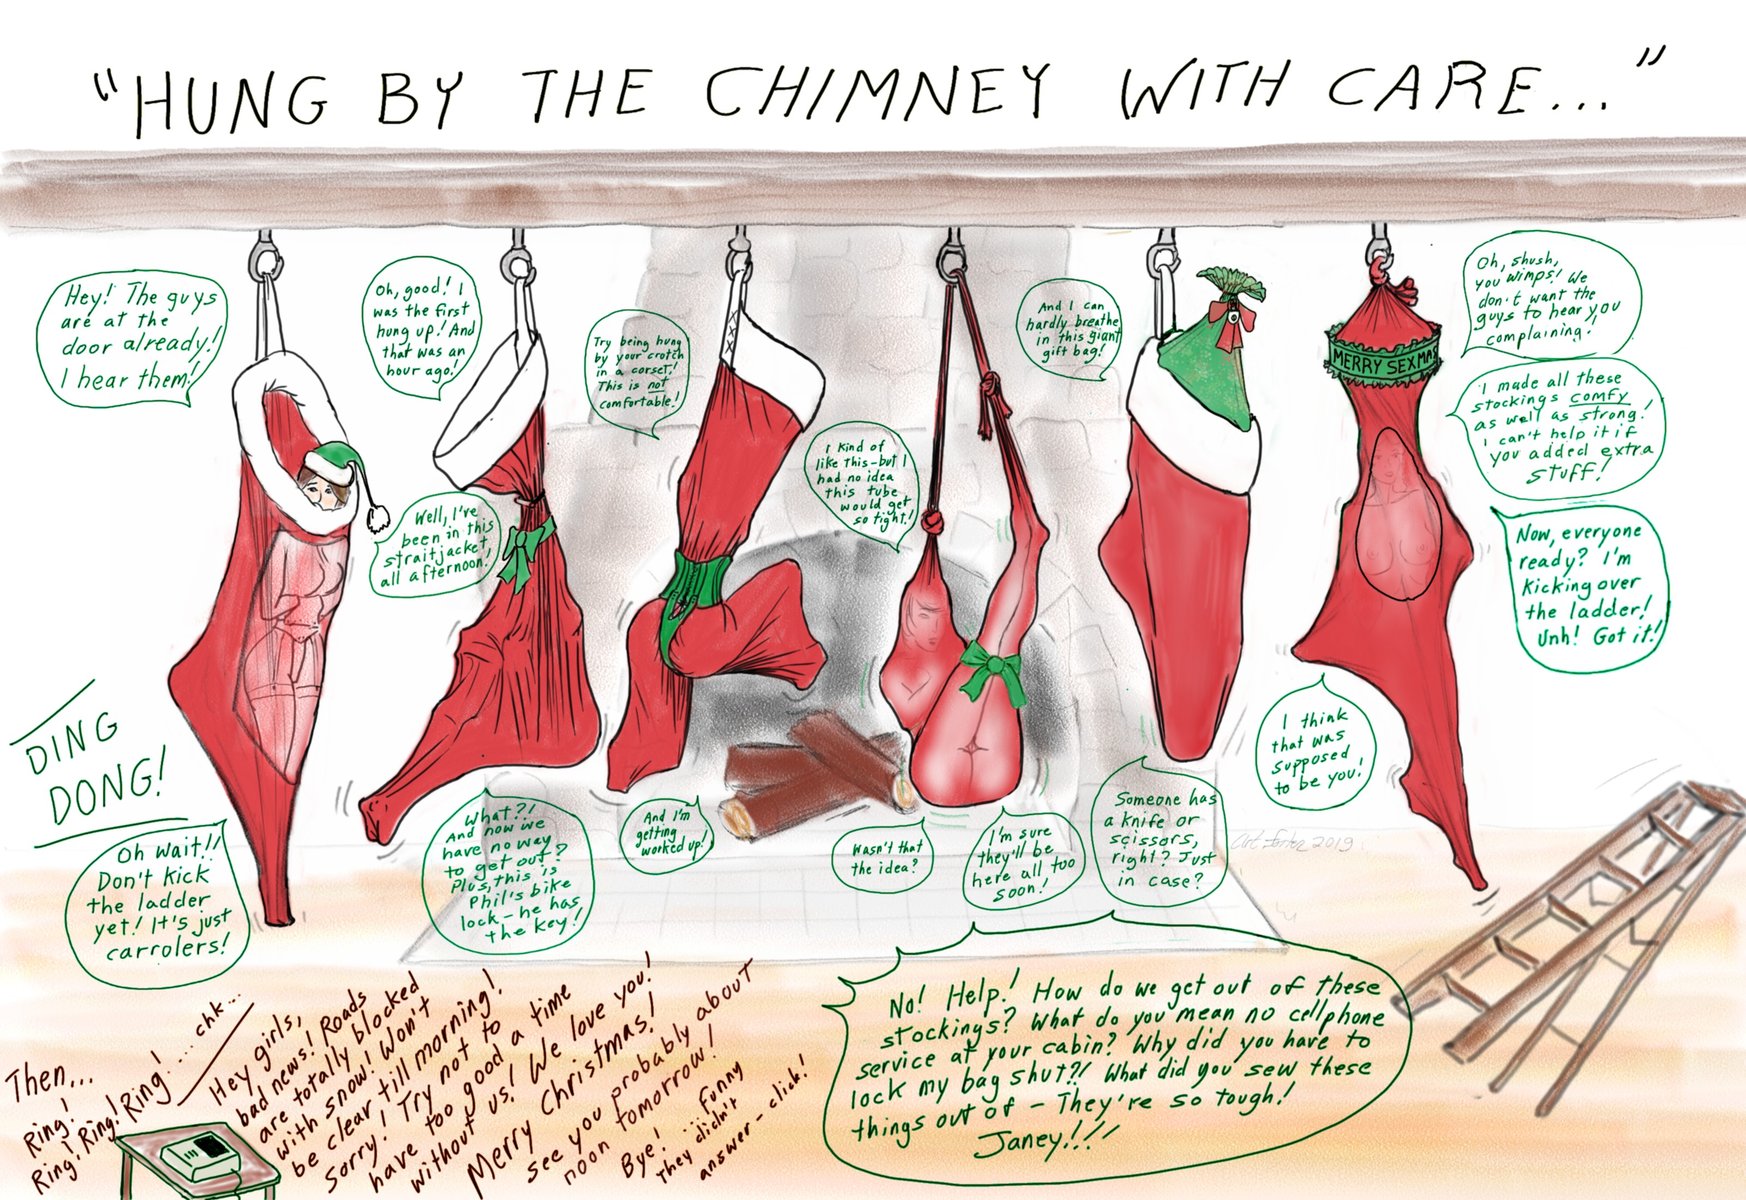 "HUNG BY THE CHIMNEY WITH CARE..."
Hey! The guys
are at the
door already!
I hear them!
Oh, good! I
was the first
hung up! And
that was an
hour ago!
Well, I've
been in this
straitjacket
all afternoon!
Try being hung
by your crotch
in a corset!
This is not
comfortable!
I kind of
like this-but I
had no idea
this tube
would get
so tight!
And I can
hardly breathe
in this giant
gift bag!
MERRY SEXMAS
Oh, shush,
you wimps! We
don't want the
guys to hear you
complaining!
I made all these
stockings comfy
as well as strong!
I can't help it if
you added extra
stuff!
Now, everyone
ready? I'm
kicking over
the ladder!
Unh! Got it!
DING
DONG!
Oh wait!!
Don't kick
the ladder
yet! It's just
carrolers!
What?!
And now we
have no way
to get out?
Plus, this is
Phil's bike
lock-he has
the key!
And I'm
getting
worked up!
Wasn't that
the idea?
I'm sure
they'll be
here all too
soon!
Someone has
a knife or
scissors,
right? Just
in case?
I think
that was
supposed
to be you!
2019
Then...
Ring!
Ring! Ring! Ring! ...chk...
Hey girls,
bad news! Roads
are totally blocked
with snow! Won't
be clear till morning!
Sorry! Try not to
have too good a time
without us! We love you!
Merry Christmas!
See you probably about
noon tomorrow!
Bye! ...Funny
They didn't
answer-click!
No! Help! How do we get out of these
stockings? What do you mean no cellphone
service at your cabin? Why did you have to
lock my bag shut?! What did you sew these
things out of - They're so tough!
Janey!!!